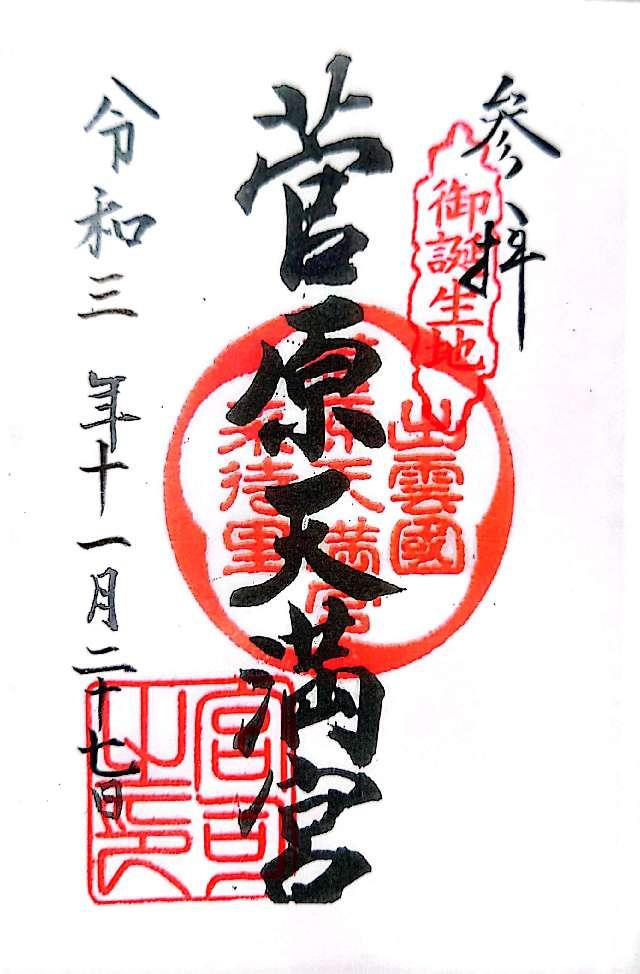 参拝
御誕生地
菅原天満宮
出雲國
菅原天満宮
来待里
令和三年十一月二十七日
宮司之印